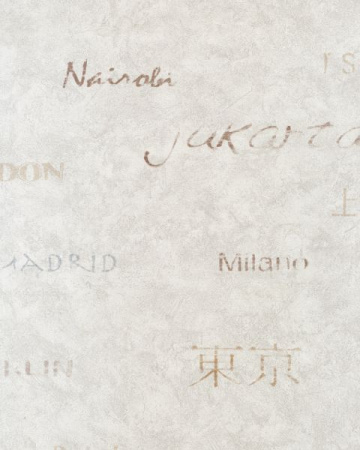 Nairobi
rs
Jakarta
DON
上
MADRID
Milano
RLIN
東京